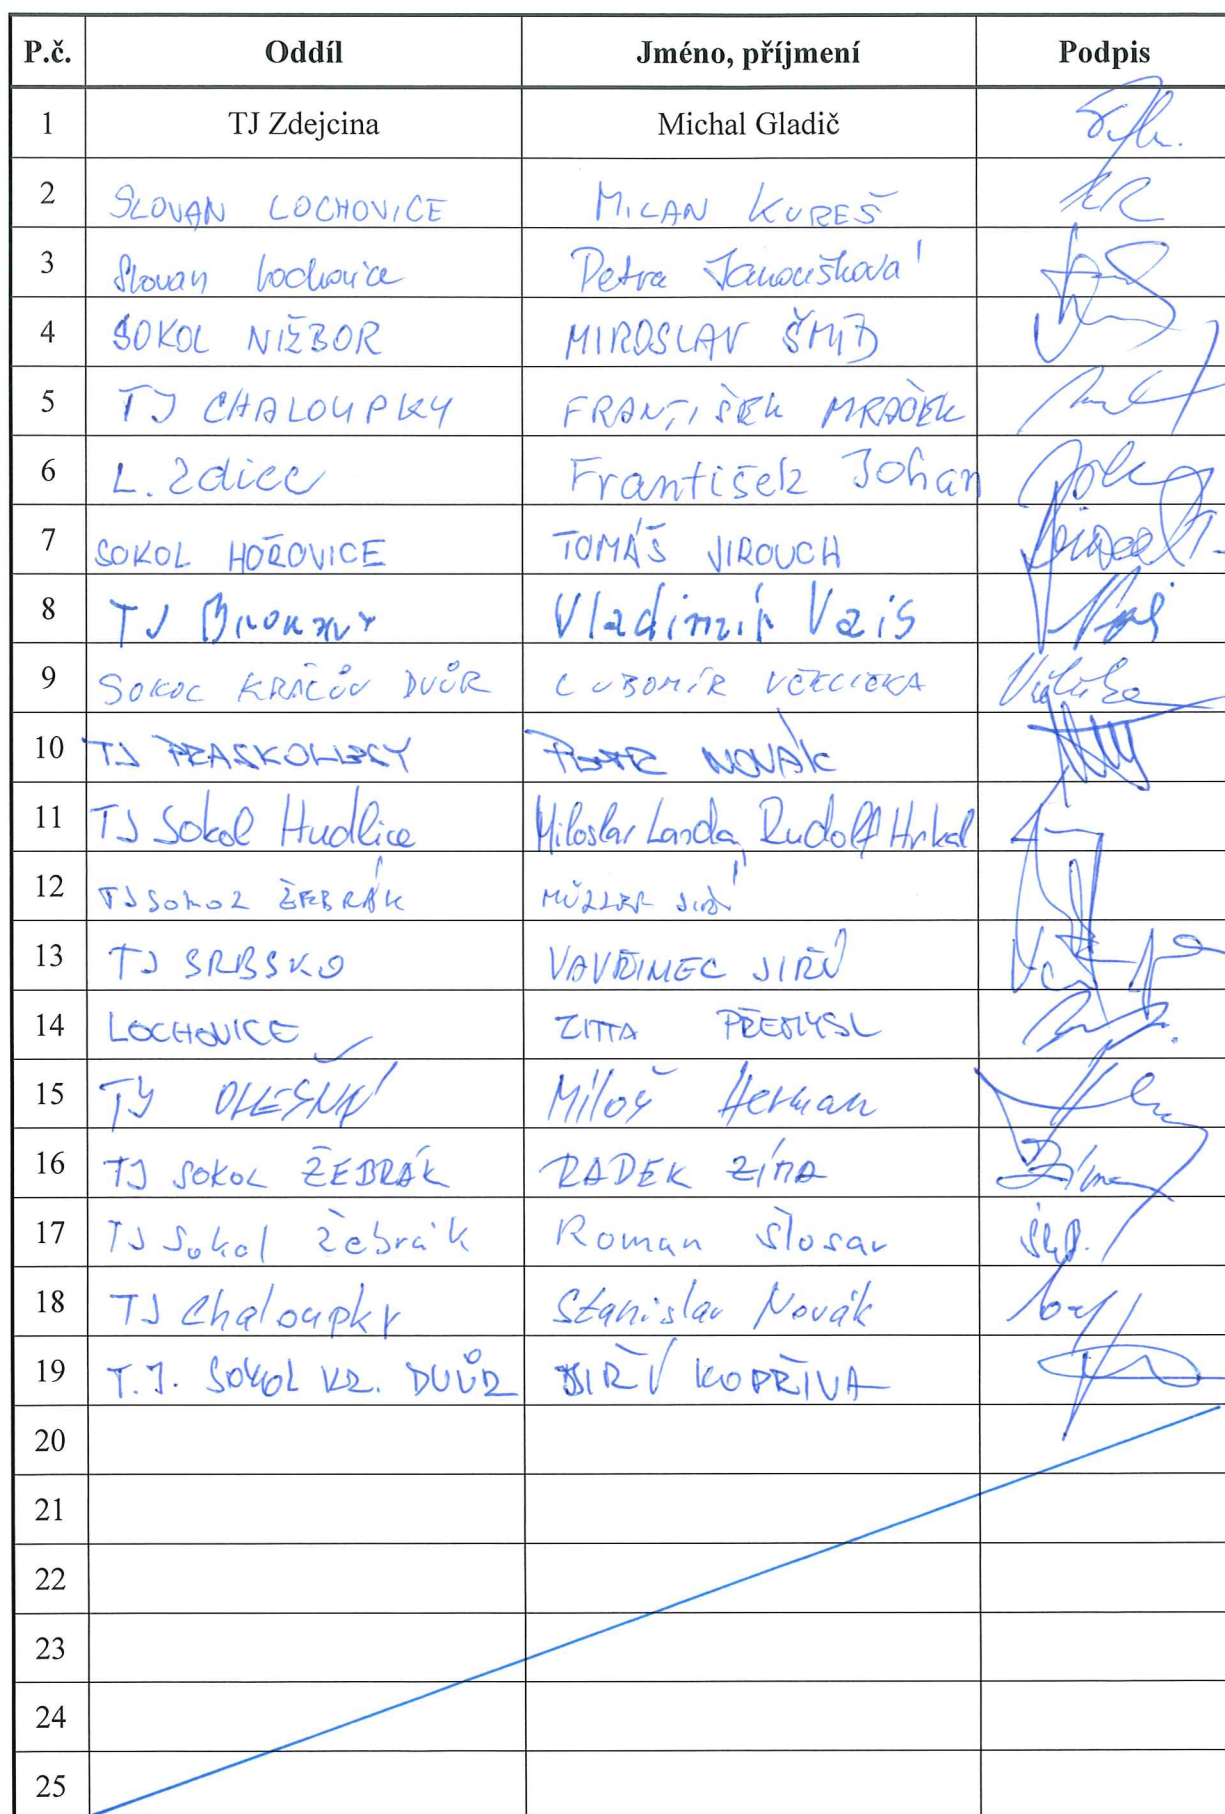 P.č. Oddíl Jméno, příjmení Podpis
1 TJ Zdejcina Michal Gladič
2 SLOVAN LOCHOVICE MILAN KUREŠ
3 Slovan Lochovice Petra Janoušková
4 SOKOL NIŽBOR MIROSLAV ŠMÍD
5 TJ CHALOUPKY FRANTIŠEK MRÁČEK
6 L. Zdice František Johan
7 SOKOL HOŘOVICE TOMÁŠ JIROUCH
8 TJ Vladimír Vais
9 SOKOL KRÁLŮV DVŮR LUBOMÍR
10 TJ PRASKOLESY PETR NOVÁK
11 TJ Sokol Hudlice Miloslav Landa, Rudolf Hrkal
12 TJ SOKOL ŽEBRÁK MÜLLER JIŘÍ
13 TJ SRBSKO VAVŘINEC JIŘÍ
14 LOCHOVICE ZITTA PŘEMYSL
15 TJ OLEŠNÁ Miloš Herman
16 TJ SOKOL ŽEBRÁK RADEK ZÍMA
17 TJ Sokol Žebrák Roman Šlosar
18 TJ Chaloupky Stanislav Novák
19 T.J. SOKOL KR. DVŮR JIŘÍ KOPŘIVA
20
21
22
23
24
25